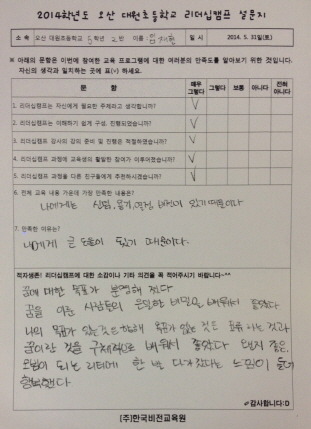 2014학년도 오산 대원초등학교 리더십캠프 설문지
소 속 오산 대원초등학교 5학년 2반 이름: 일 시 2014. 5. 31일(토)
※ 아래의 문항은 이번에 참여한 교육 프로그램에 대한 여러분의 만족도를 알아보기 위한 것입니다.
자신의 생각과 일치하는 곳에 표(∨) 하세요.
문 항 매우 그렇다 그렇다 보통 아니다 전혀 아니다
1. 리더십캠프는 자신에게 필요한 주제라고 생각합니까? ∨
2. 리더십캠프는 이해하기 쉽게 구성, 진행되었습니까? ∨
3. 리더십캠프 강사의 강의 준비 및 진행은 적절하였습니까? ∨
4. 리더십캠프 과정에 교육생의 활발한 참여가 이루어졌습니까? ∨
5. 리더십캠프 과정을 다른 친구들에게 추천하시겠습니까? ∨
6. 전체 교육 내용 가운데 가장 만족한 내용은?
나에게는 신념, 용기, 열정, 비전이 있기 때문이다
7. 만족한 이유는?
나에게 큰 도움이 됬기 때문이다.
적자생존! 리더십캠프에 대한 소감이나 기타 의견을 꼭 적어주시기 바랍니다~^^
꿈에 대한 목표가 분명해 졌다
꿈을 이룬 사람들의 은밀한 비밀을 배워서 좋았다
나의 목표가 있는 것은 항해 목표가 없는 것은 표류 하는 것과
꿈이란 것을 구체적으로 배워서 좋았다 왠지 꿈은
되는 한 발 다가갔다는 느낌이 들어
행복했다
☞감사합니다:D
(주)한국비전교육원